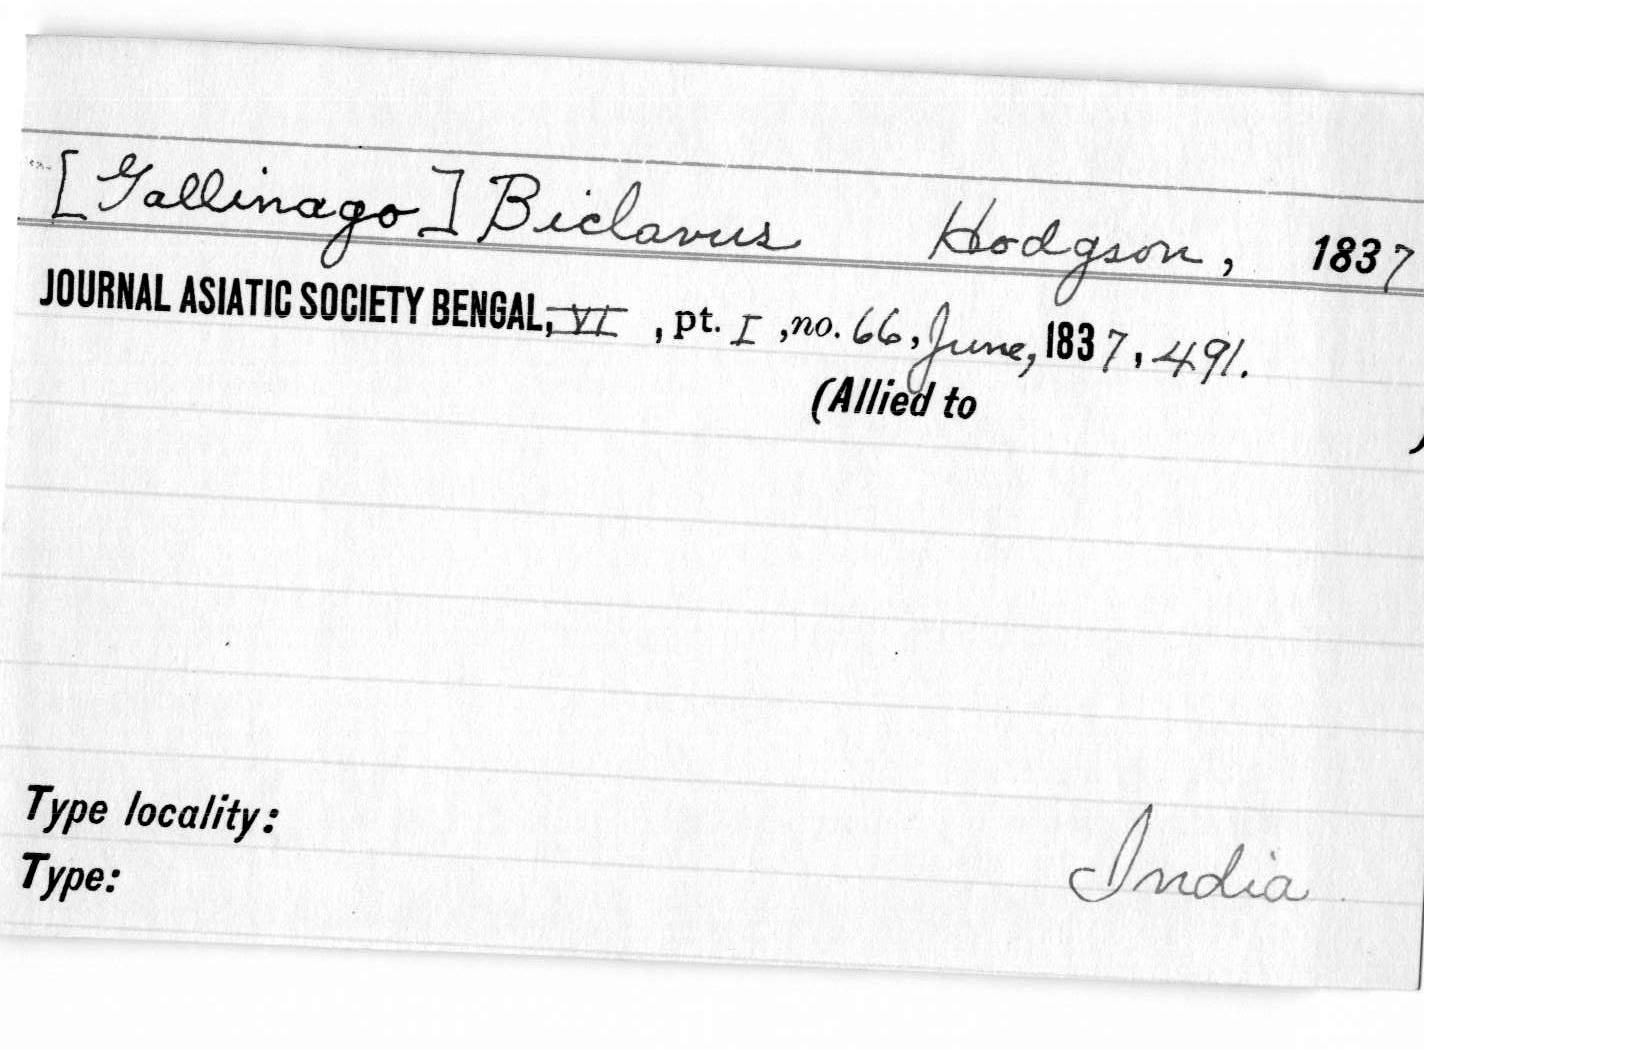 [Gallinago] Biclavus Hodgson, 1837
JOURNAL ASIATIC SOCIETY BENGAL, VI, pt. I, no. 66, June, 1837, 491.
(Allied to )
Type locality:
Type: India